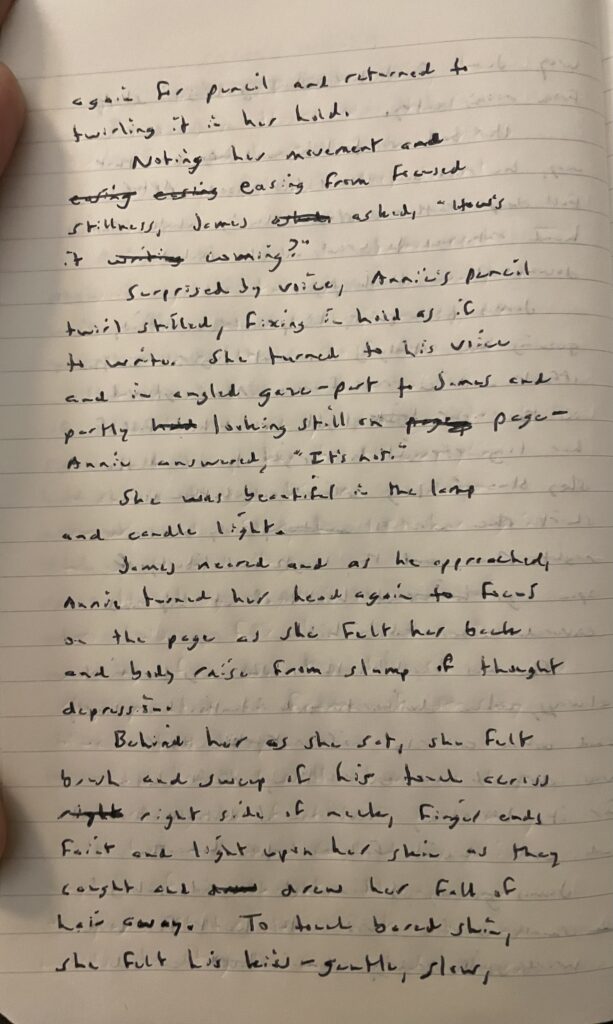 again for pencil and returned to
twirling it in her hold.
Noting her movement and
easing easing easing from focused
stillness, James asked, "How's
it writing coming?"
Surprised by voice, Annie's pencil
twirl stilled, fixing in hold as if
to write. She turned to his voice
and in angled gaze-part to James and
partly held looking still on page page-
Annie answered, "It's not."
She was beautiful in the lamp
and candle light.
James neared and as he approached,
Annie turned her head again to focus
on the page as she felt her back
and body raise from slump of thought
depression.
Behind her as she sat, she felt
brush and sweep of his touch across
right right side of neck, finger ends
faint and light upon her skin as they
caught and drew her fall of
hair away. To touch bared skin,
she felt his kiss-gentle, slow,